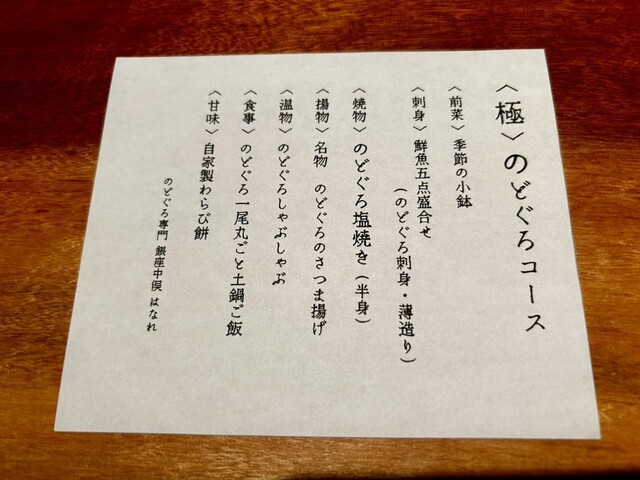 〈極〉のどぐろコース
〈前菜〉季節の小鉢
〈刺身〉鮮魚五点盛合せ
(のどぐろ刺身・薄造り)
〈焼物〉のどぐろ塩焼き(半身)
〈揚物〉名物 のどぐろのさつま揚げ
〈温物〉のどぐろしゃぶしゃぶ
〈食事〉のどぐろ一尾丸ごと土鍋ご飯
〈甘味〉自家製わらび餅
のどぐろ専門 銀座中俣 はなれ